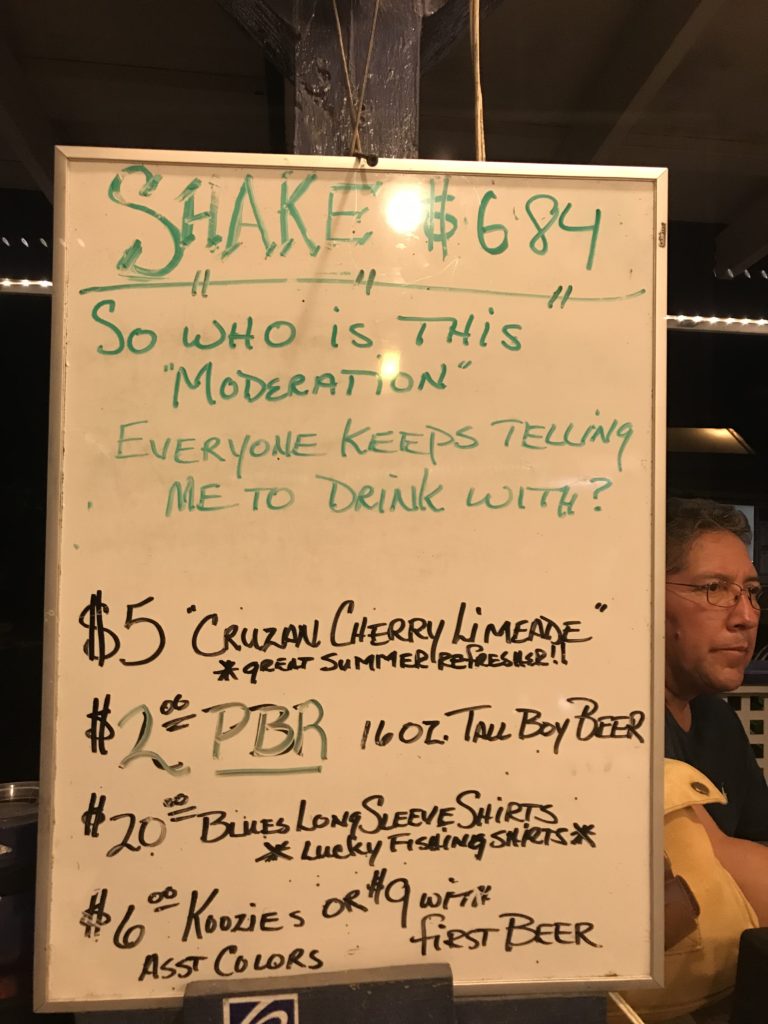 SHAKE $684
SO WHO IS THIS
"MODERATION"
EVERYONE KEEPS TELLING
ME TO DRINK WITH?
$5 "CRUZAN CHERRY LIMEADE"
*GREAT SUMMER REFRESHER!!
$2.00 PBR 16 OZ. TALL BOY BEER
$20.00 BLUES LONG SLEEVE SHIRTS
*LUCKY FISHING SHIRTS*
$6.00 KOOZIES OR $9 WITH
ASST COLORS FIRST BEER